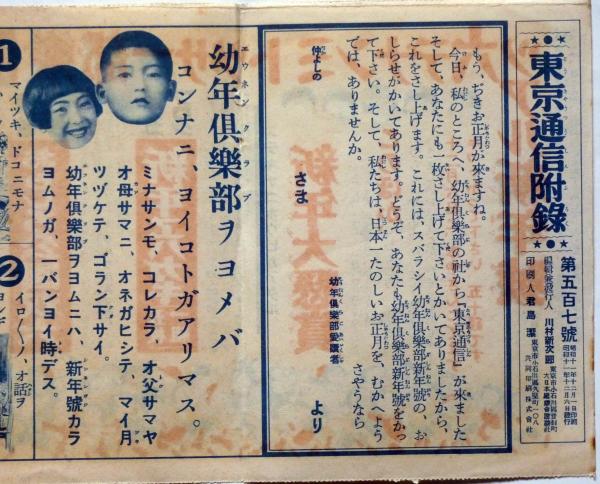 東京通信附錄
第五百七號
昭和十一年十二月一日印刷
昭和十一年十二月六日發行
編輯兼發行人 川村新次郎
大日本雄辯會講談社
印刷人 君島潔
東京市小石川區久堅町一〇八
共同印刷株式會社
もう、ぢきお正月が來ますね。
今日、私のところへ、幼年俱樂部の社から『東京通信』が來ました
そして、あなたにも一枚さし上げて下さいとかいてありましたから、
これをさし上げます。これには、スバラシイ幼年俱樂部新年號の、お
しらせがかいてあります。どうぞ、あなたも幼年俱樂部新年號をかっ
て下さい。そして、私たちは、日本一たのしいお正月を、むかへよう
では、ありませんか。
さやうなら
幼年俱樂部愛讀者
より
仲よしの
さま
エウネンクラブ
幼年俱樂部ヲヨメバ
コンナニ、ヨイコトガアリマス。
ミナサンモ、コレカラ、オ父サマヤ
オ母サマニ、オネガヒシテ、マイ月
ツヅケテ、ゴラン下サイ。
幼年俱樂部ヲヨムニハ、新年號カラ
ヨムノガ、一バンヨイ時デス。
1
マイツキ、ドコニモナ
2
イロ〱ノ、オ話ヲ